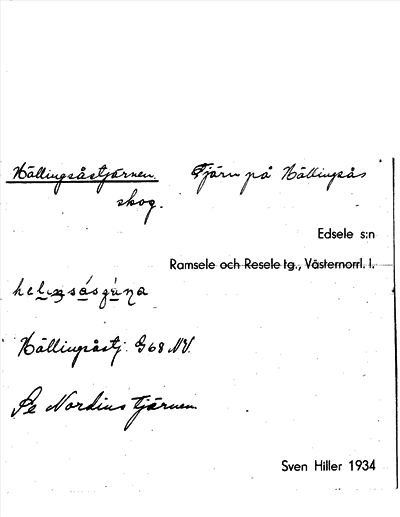 Hällingsåstjärnen. Tjärn på Hällingsås
skog.
Edsele s:n
Ramsele och Resele tg., Västernorrl. l.
Hällingsåstj. G 68 NV.
Se Nordins tjärnen
Sven Hiller 1934